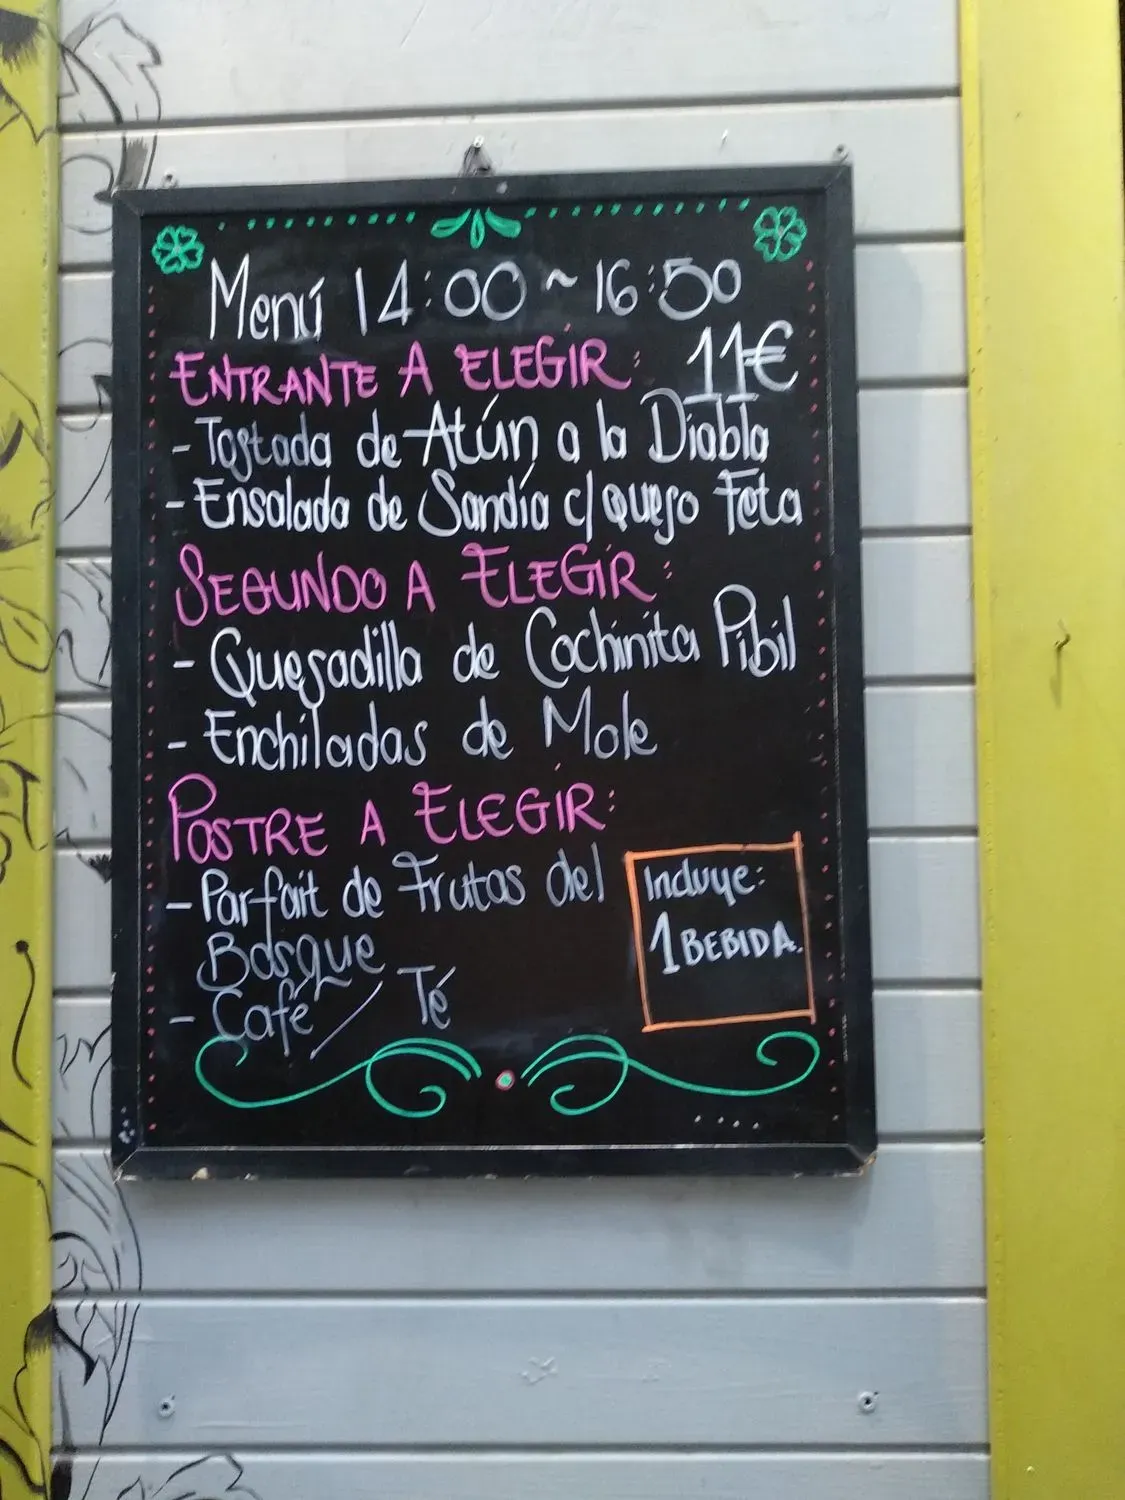 Menú 14:00 ~ 16:50
ENTRANTE A ELEGIR: 11€
- Tostada de Atún a la Diabla
- Ensalada de Sandía c/ queso Feta
SEGUNDO A ELEGIR:
- Quesadilla de Cochinita Pibil
- Enchiladas de Mole
POSTRE A ELEGIR:
- Parfait de Frutas del
Bosque
- Café / Té
Incluye:
1 BEBIDA.